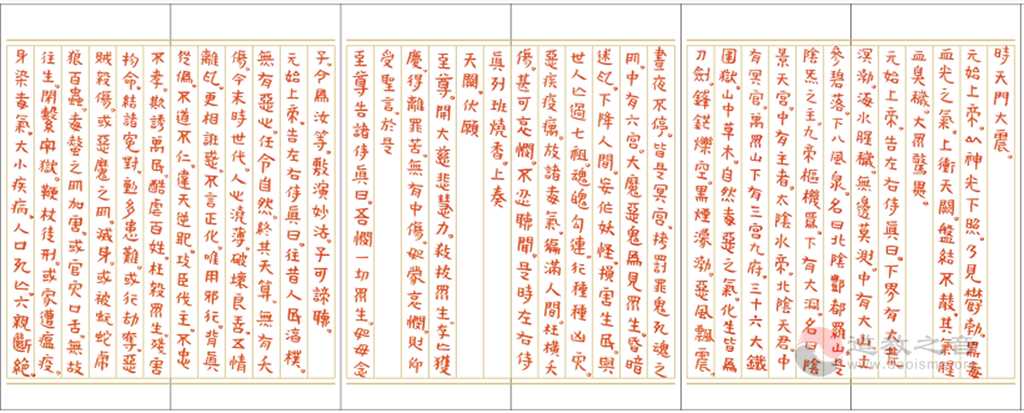 時天門大震。
元始上帝。以神光下照。乃見欝勃。黑毒
血光之氣。上衝天闕。盤結不散。其氣腥
血臭穢。大眾驚畏。
元始上帝。告左右侍真曰。下界有大北
溟渤海。水腥穢。無邊莫測。中有大山。上
參碧落。下入風泉。名曰北陰酆都羅山。是
陰炁之主。九帝樞機。最下有大洞。名曰陰
景天宮。中有主者。太陰水帝。北陰天君。中
有冥官。萬眾。山下有三宮九府。三十六大鐵
圍獄。山中草木。自然毒惡之氣。化生皆為
刀劍。鋒鋩爍空。黑煙濛渤。惡風飄震。
晝夜不停。皆是冥宮。拷罰罪鬼。死魂之
所。中有六宮。大魔惡鬼。為見眾生。昏暗
迷乱。下降人間。妄作妖怪。損害生民。與
世人亡過七祖。魂魄勾連。行種種凶灾。
惡疾疫癘。放諸毒氣。徧滿人間。枉橫夭
傷。甚可哀憫。不忍聽聞。是時左右侍
真。列班燒香。上奏
天闕。伏願
至尊。開大慈悲慧力。救拔眾生。存亡獲
慶。得離罪苦。無有中傷。如蒙哀憫。則仰
受聖言。於是
至尊。告諸侍真曰。吾憫一切眾生。如母念
子。今為汝等。敷演妙法。子可諦聽。
元始上帝。告左右侍真曰。往昔人民淳樸。
無有惡心。任合自然。終其天算。無有夭
傷。今末時世代。人心澆薄。破壞良善。五情
離乱。更相誑惑。不言正化。唯用邪行。背真
從偽。不道不仁。違天逆耶。攻臣伐主。不忠
不孝。欺誘萬民。酷虐百姓。枉殺眾生。殘害
物命。結諸冤對。動多患難。或行劫奪。惡
賊殺傷。或惡魔之所。滅身。或被蚖蛇虎
狼百蟲。毒螫之所加害。或官灾口舌。無故
往生。閉繫牢獄。鞭杖徒刑。或家遭瘟疫。
身染毒氣。大小疾病。人口死亡。六親斷絶。
道教之音
www.daoisms.com